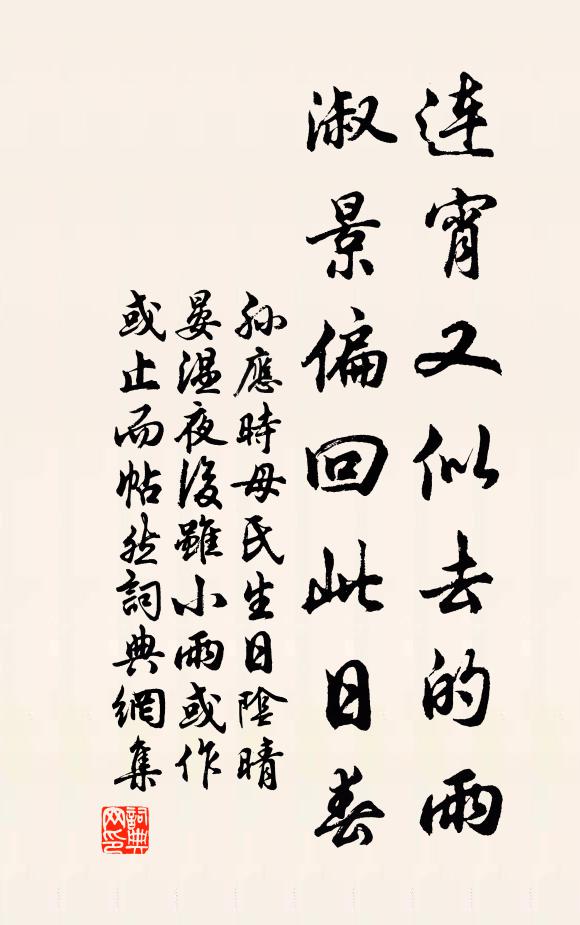 連宵又似去的雨
淑景偏回此日春
孫應時母氏生日陰晴
晏溫夜後雖小雨或作
或止而帖然詞典網集
詞典网印